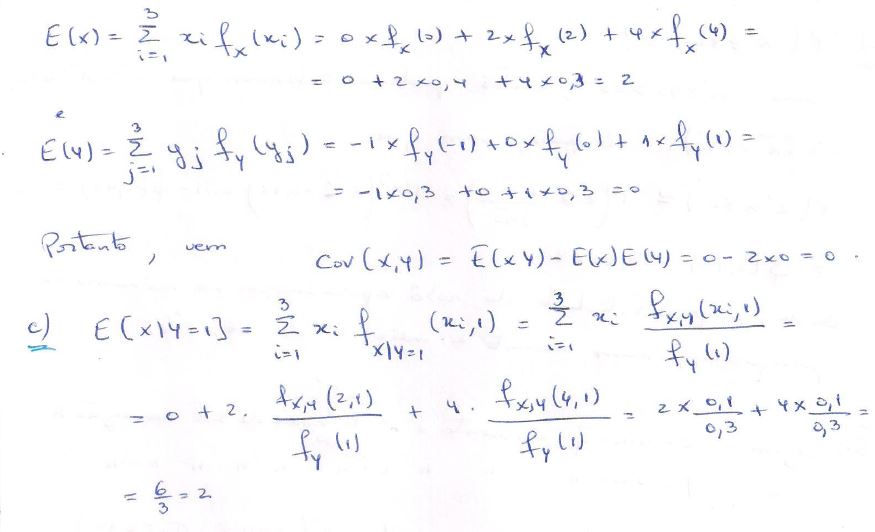 E(x) = Σ_{i=1}^{3} xi f_x(xi) = 0 × f_x(0) + 2 × f_x(2) + 4 × f_x(4) =
= 0 + 2 × 0,4 + 4 × 0,3 = 2
e
E(y) = Σ_{j=1}^{3} yj f_y(yj) = -1 × f_y(-1) + 0 × f_y(0) + 1 × f_y(1) =
= -1 × 0,3 + 0 + 1 × 0,3 = 0
Portanto, vem Cov(x,y) = E(xy) - E(x)E(y) = 0 - 2×0 = 0.
c) E[x|y=1] = Σ_{i=1}^{3} xi f_{x|y=1}(xi,1) = Σ_{i=1}^{3} xi f_{x,y}(xi,1) / f_y(1) =
= 0 + 2. f_{x,y}(2,1) / f_y(1) + 4. f_{x,y}(4,1) / f_y(1) = 2 × 0,1/0,3 + 4 × 0,1/0,3 =
= 6/3 = 2